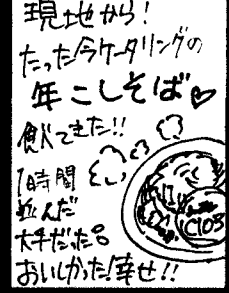 現地から!
たった今ケータリングの
年こしそば♡
飲できた!!
1時間
並んだ
大手だった。
おいしかった!幸せ!!
C103